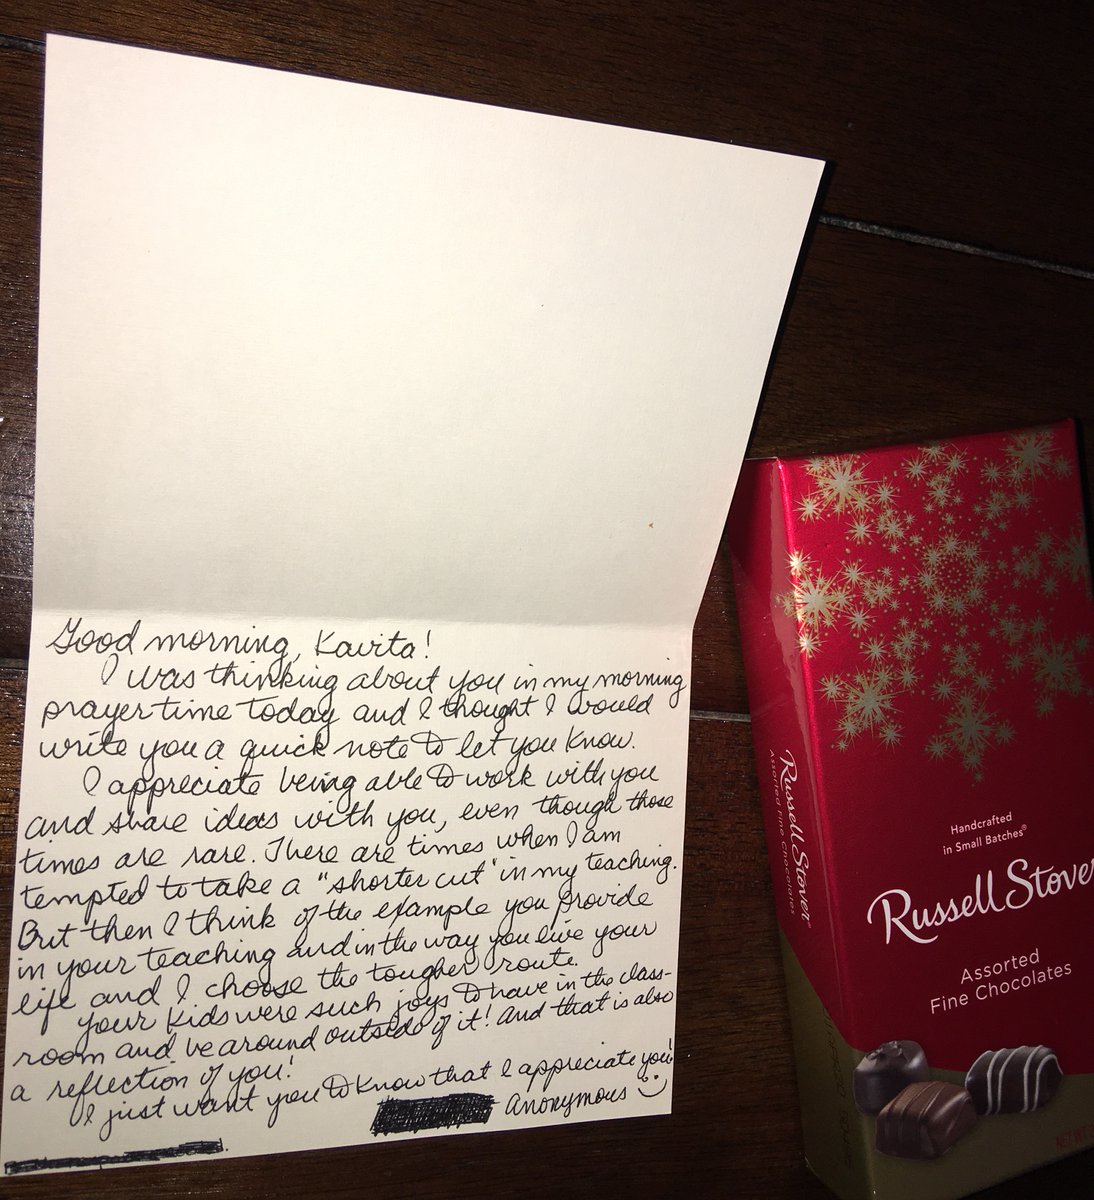 Good morning, Kavita!
I was thinking about you in my morning
prayer time today and I thought I would
write you a quick note to let you know.
I appreciate being able to work with you
and share ideas with you, even though those
times are rare. There are times when I am
tempted to take a "shorter cut" in my teaching.
But then I think of the example you provide
in your teaching and in the way you live your
life and I choose the tougher route.
Your kids were such joys to have in the class-
room and be around outside of it! And that is also
a reflection of you!
I just want you to know that I appreciate you!
Anonymous :)
Handcrafted
in Small Batches®
Russell Stover
Assorted
Fine Chocolates
Russell Stover®
Assorted Fine Chocolates
NET WT